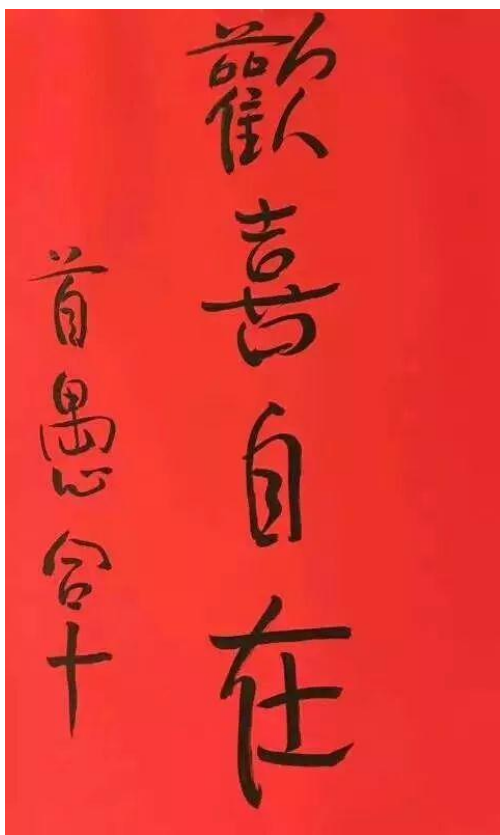 歡喜自在
首愚合十